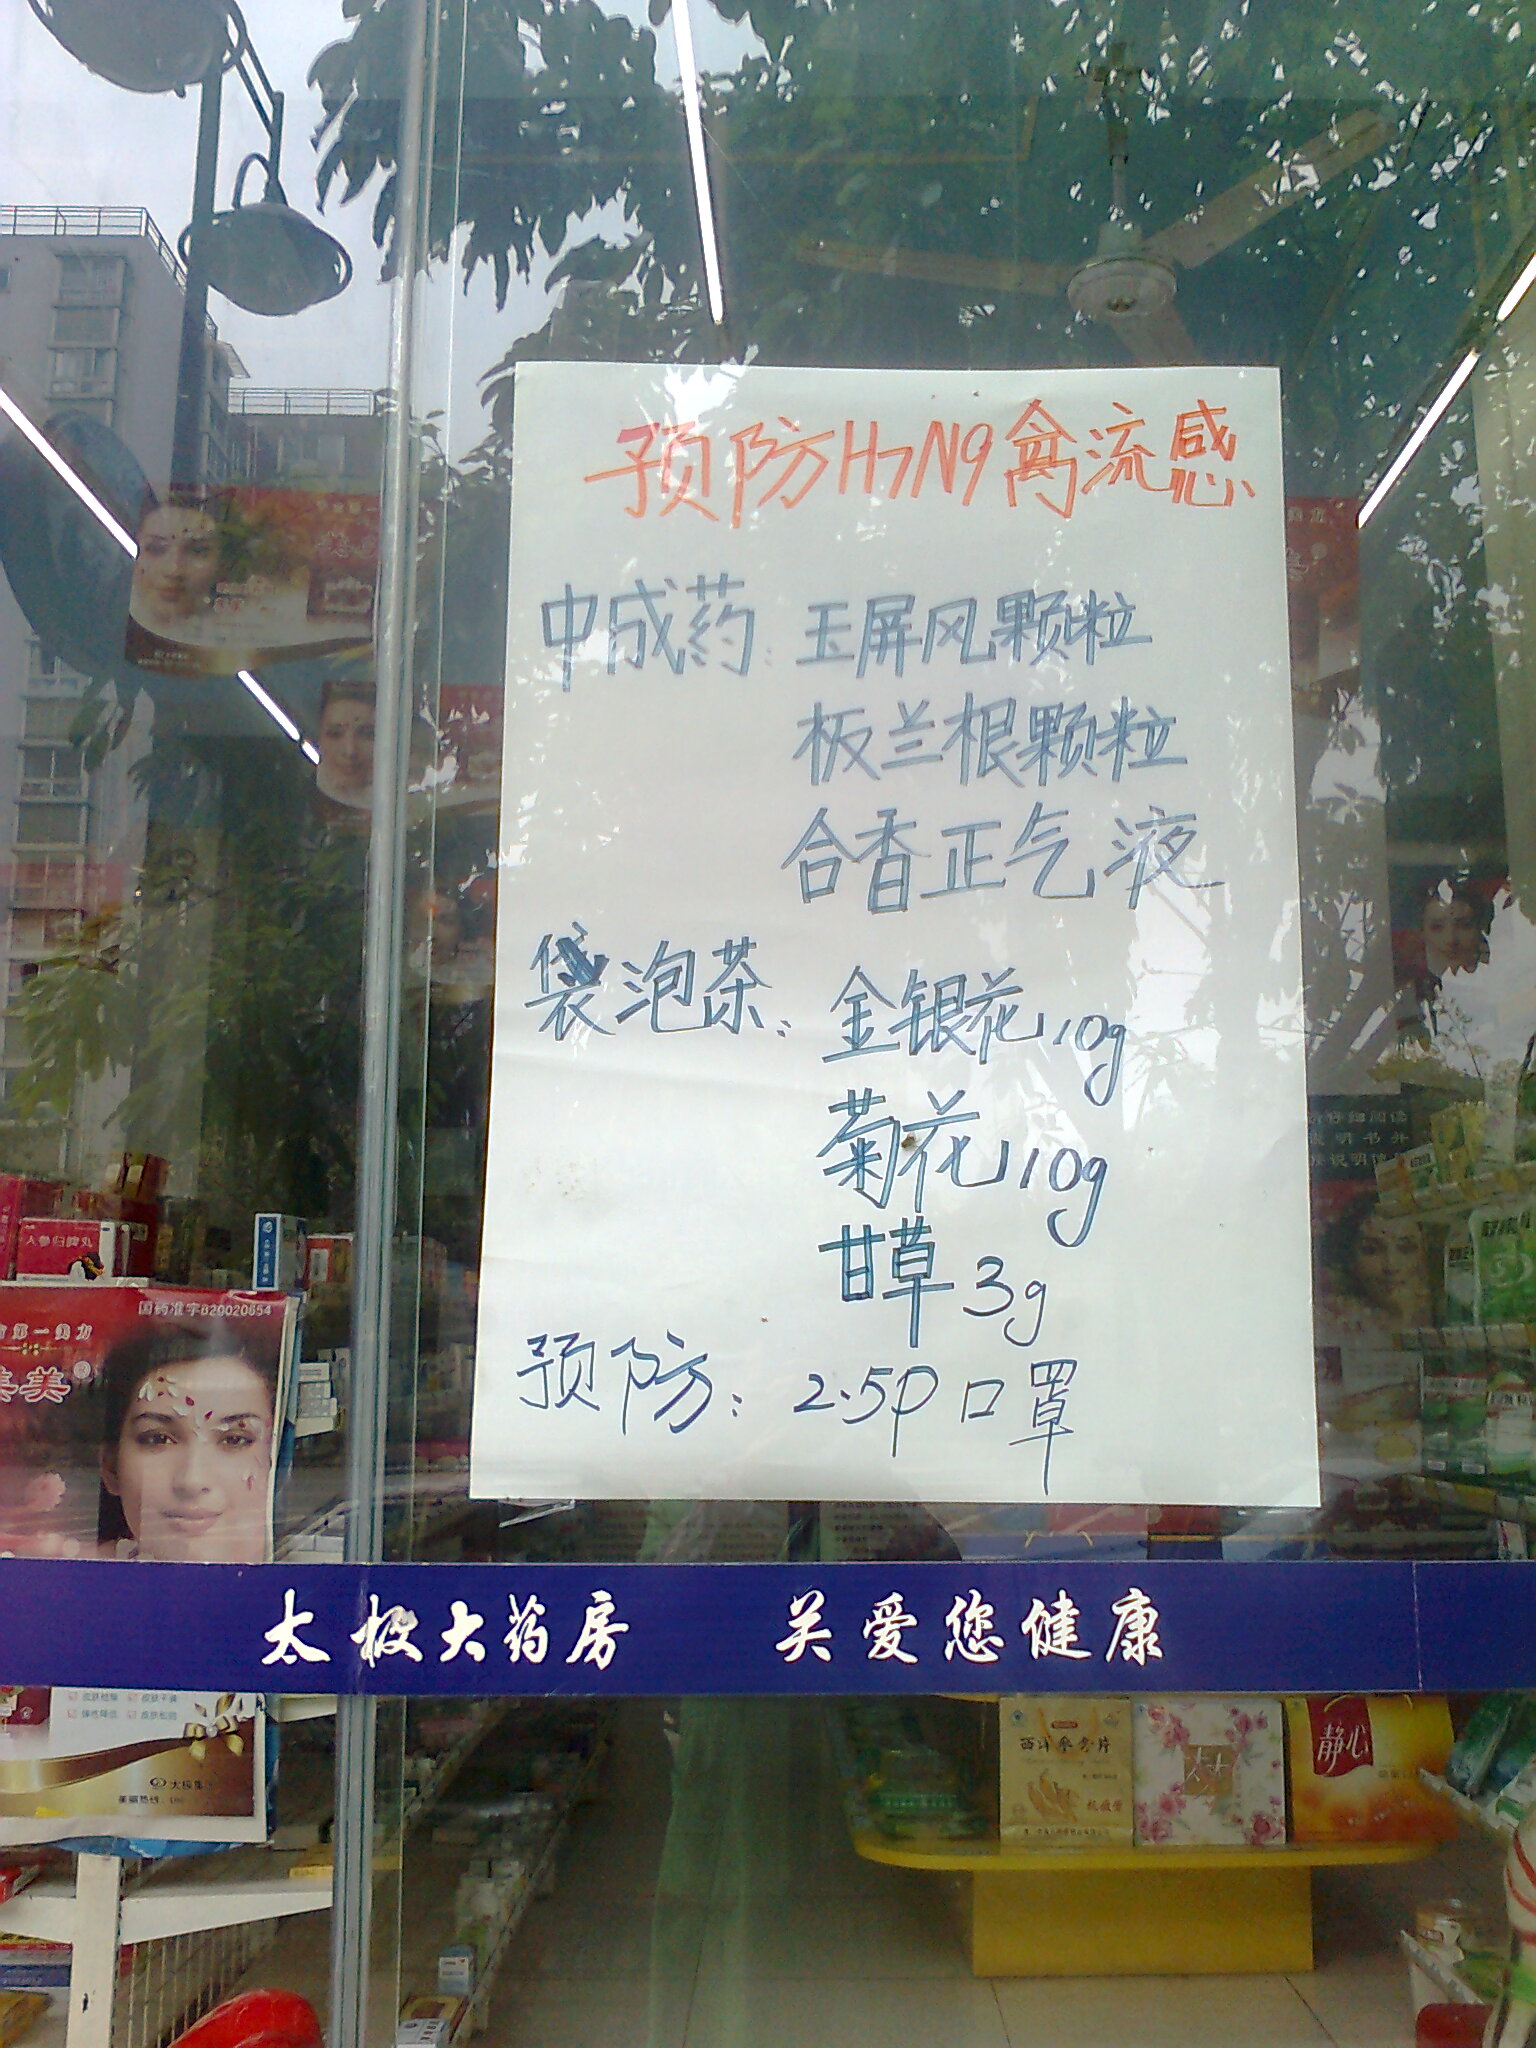 预防H7N9禽流感
中成药:玉屏风颗粒
板兰根颗粒
合香正气液
袋泡茶:金银花10g
菊花10g
甘草3g
预防:2.5P口罩
国药准字B20020654
太极大药房 关爱您健康
静心